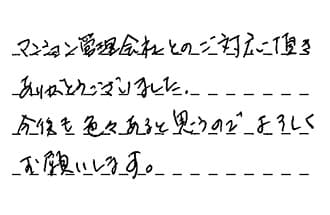 マンション管理会社とのご対応に頂き
ありがとうございました。
今後も色々あると思うのでよろしく
お願いします。